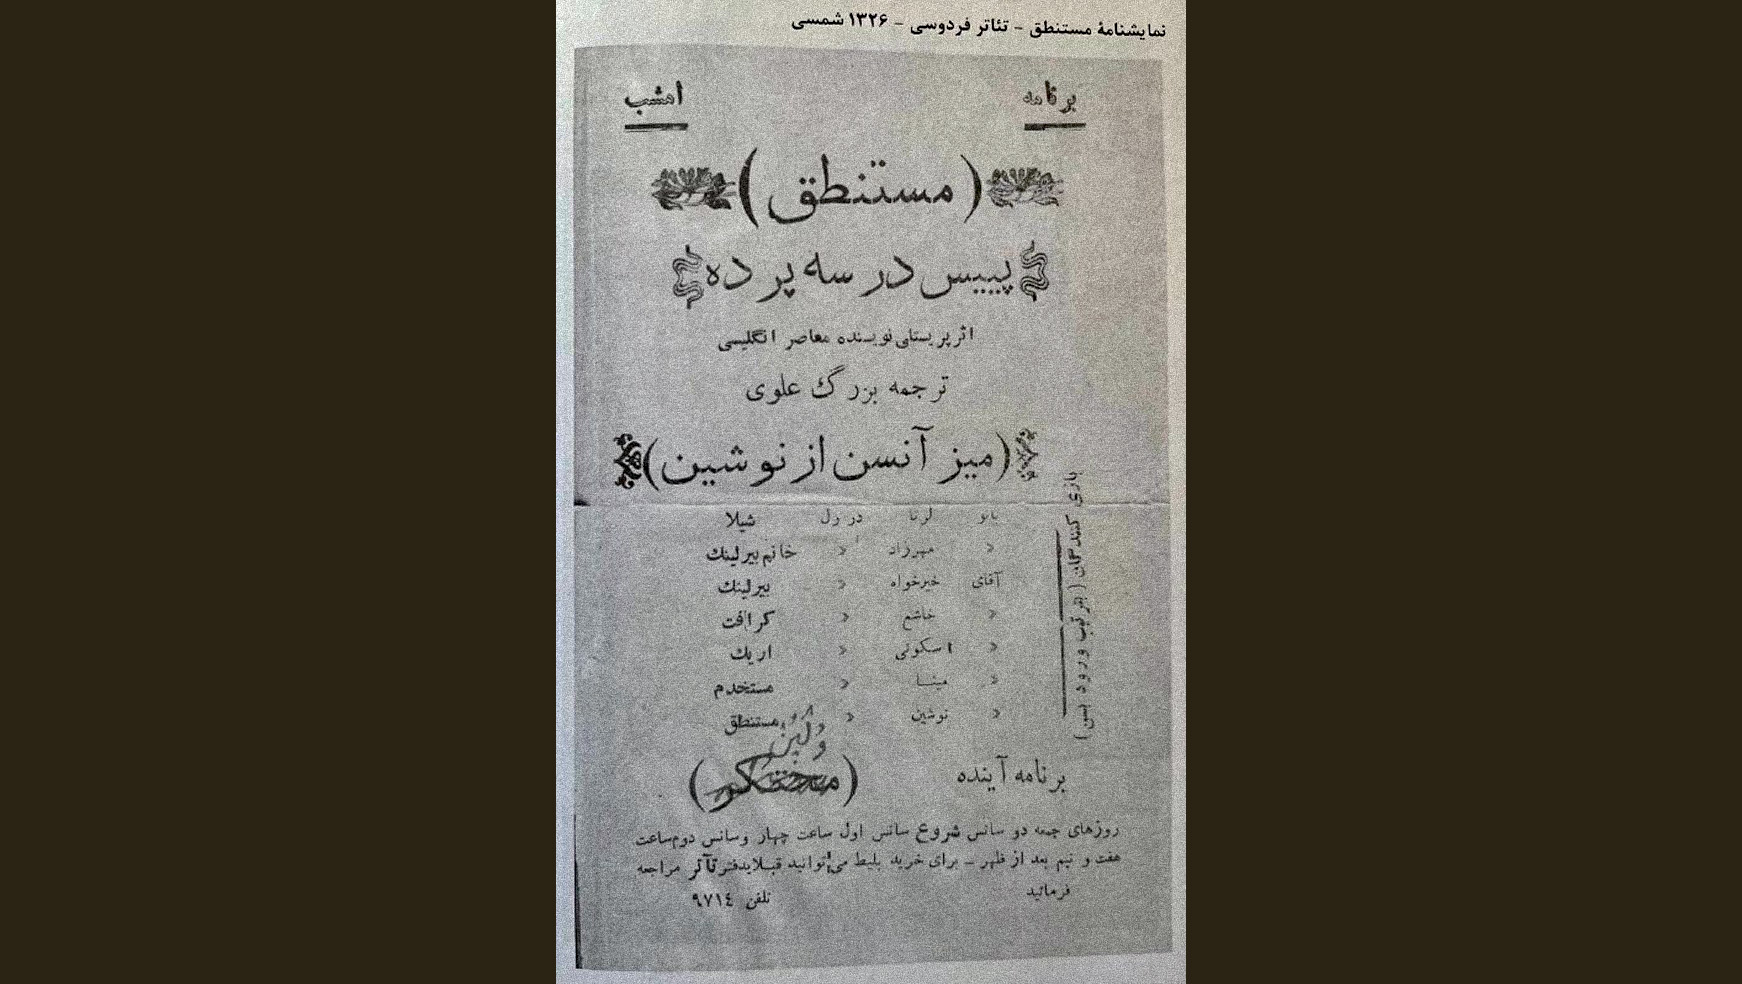 نمایشنامهٔ مستنطق - تئاتر فردوسی - ۱۳۲۶ شمسی
برنامه امشب
(مستنطق)
پییس در سه پرده
اثر پریستلی نویسنده معاصر انگلیسی
ترجمه بزرگ علوی
(میز آنسن از نوشین)
بازی کنندگان (بترتیب ورود بسن)
بانو لرتا در رل شیلا
» مهرزاد » خانم بیرلینك
آقای خیرخواه » بیرلینك
» خاشع » کرافت
» اسکوئی » اریك
» مینـا » مستخدم
» نوشین » مستنطق
ولپن
برنامه آینده (محتکر)
روزهای جمعه دو سانس شروع سانس اول ساعت چهار وسانس دوم ساعت
هفت و نیم بعد از ظهر - برای خرید بلیط می‌توانید قبلا بدفتر تآتر مراجعه
فرمائید
تلفن ۹۷۱٤